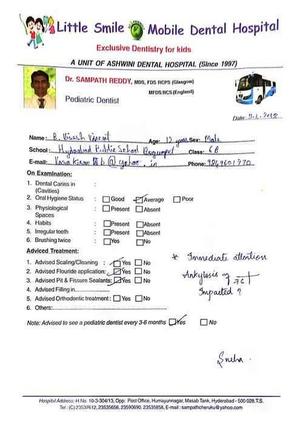 Little Smile Mobile Dental Hospital
Exclusive Dentistry for kids
A UNIT OF ASHWINI DENTAL HOSPITAL (Since 1997)
Dr. SAMPATH REDDY, MDS, FDS RCPS (Glasgow)
MFDS RCS (England)
Pediatric Dentist
Date:
Name: B. Vinesh Vineeut Age: 12 years Sex: Male
School: Hyderabad Public School Begumpet Class: 6B
E-mail: @yahoo.in Phone:
On Examination:
1. Dental Caries in :
(Cavities)
2. Oral Hygiene Status : Good Average Poor
3. Physiological : Present Absent
Spaces
4. Habits : Present Absent
5. Irregular teeth : Present Absent
6. Brushing twice : Yes No
Adviced Treatment:
1. Advised Scaling/Cleaning : Yes No
2. Advised Flouride application: Yes No
3. Advised Pit & Fissure Sealants: Yes No
4. Advised Filling in
5. Advised Orthodontic treatment : Yes No
6. Others:
* Immediate attention
Ankylosis of
Impacted ?
Note: Advised to see a pediatric dentist every 3-6 months Yes No
Sneha
Hospital Address: H.No. 10-3-304/13, Opp: Post Office, Humayunnagar, Masab Tank, Hyderabad - 500 028 T.S.
Tel: (C) 23534512, 23535658, 23590690, 23535856, E-mail : sampathcheruku@yahoo.com